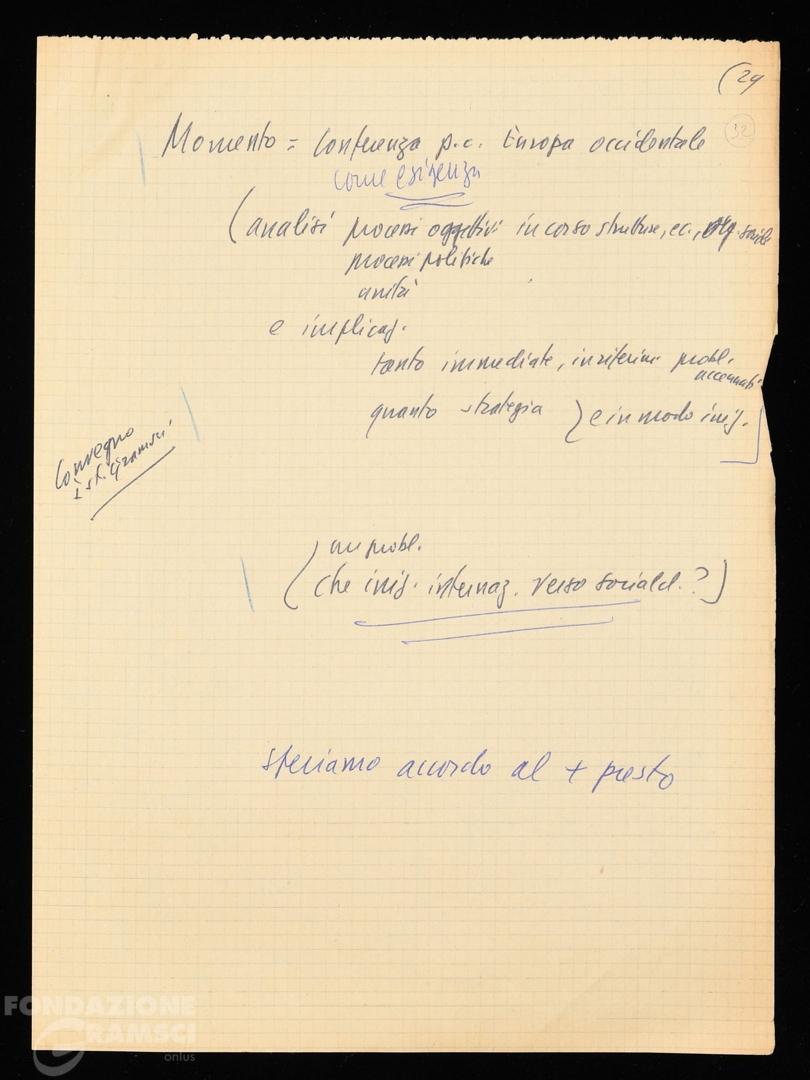 (29
32
Momento = Conferenza p.c. Europa occidentale
come esigenza
(analisi processi oggettivi in corso strutture, ec., sociale
processi politiche
unità
e implicaz.
tanto immediate, probl.
accennati
quanto strategia } e in modo iniz.
Convegno
Ist. Gramsci
probl.
(che iniz. internaz. verso sociald. ?)
speriamo accordo al + presto
FONDAZIONE
GRAMSCI
onlus